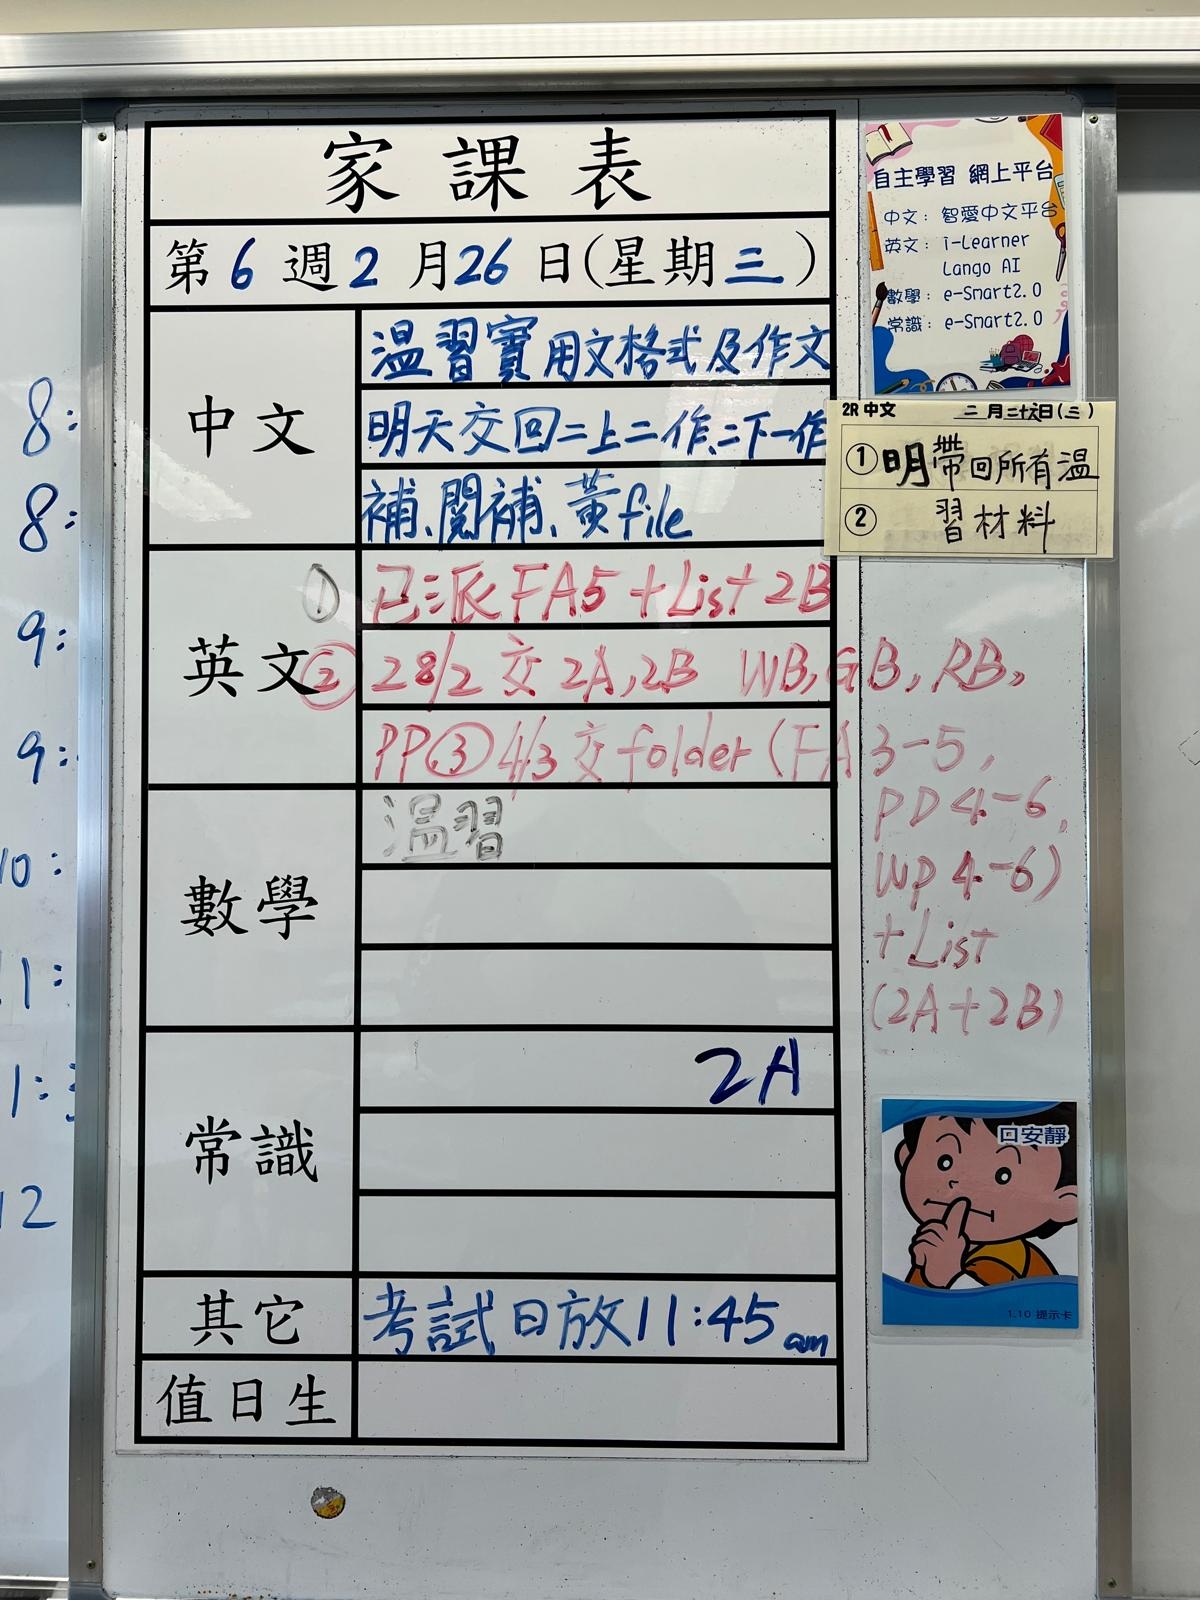 家課表
第6週2月26日(星期三)
中文
溫習實用文格式及作文
明天交回二上二作、二下一作
補、閱補、黃file
英文
① 已派FA5+List 2B
② 28/2 交 2A,2B WB,GB, RB,
PP ③ 4/3 交 folder (FA 3-5,
PD 4-6,
WP 4-6)
+List
(2A+2B)
數學
溫習
常識
2A
其它
考試日放11:45am
值日生
自主學習 網上平台
中文: 智愛中文平台
英文: i-Learner
Lango AI
數學: e-Smart2.0
常識: e-Smart2.0
2R 中文 二月二十六日(三)
① 明帶回所有溫
② 習材料
口安靜
1.10 提示卡
8:
8:
9:
9:
10:
11:
1:3
12